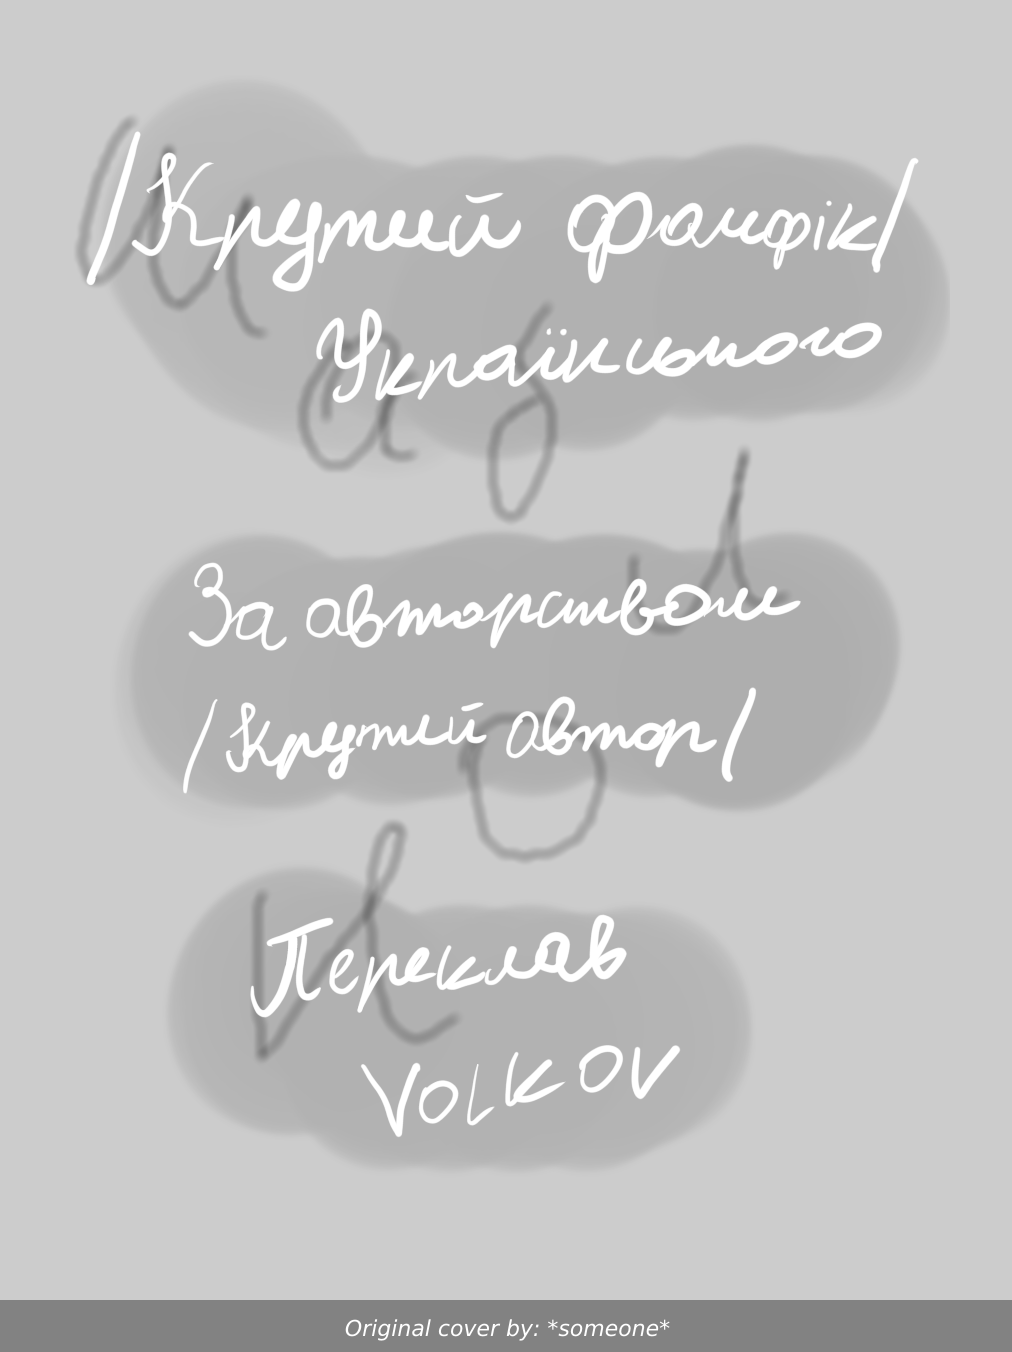 /Крутий фанфік/
Українського
За авторством
/Крутий автор/
Переклав
VOLKOV
Original cover by: *someone*